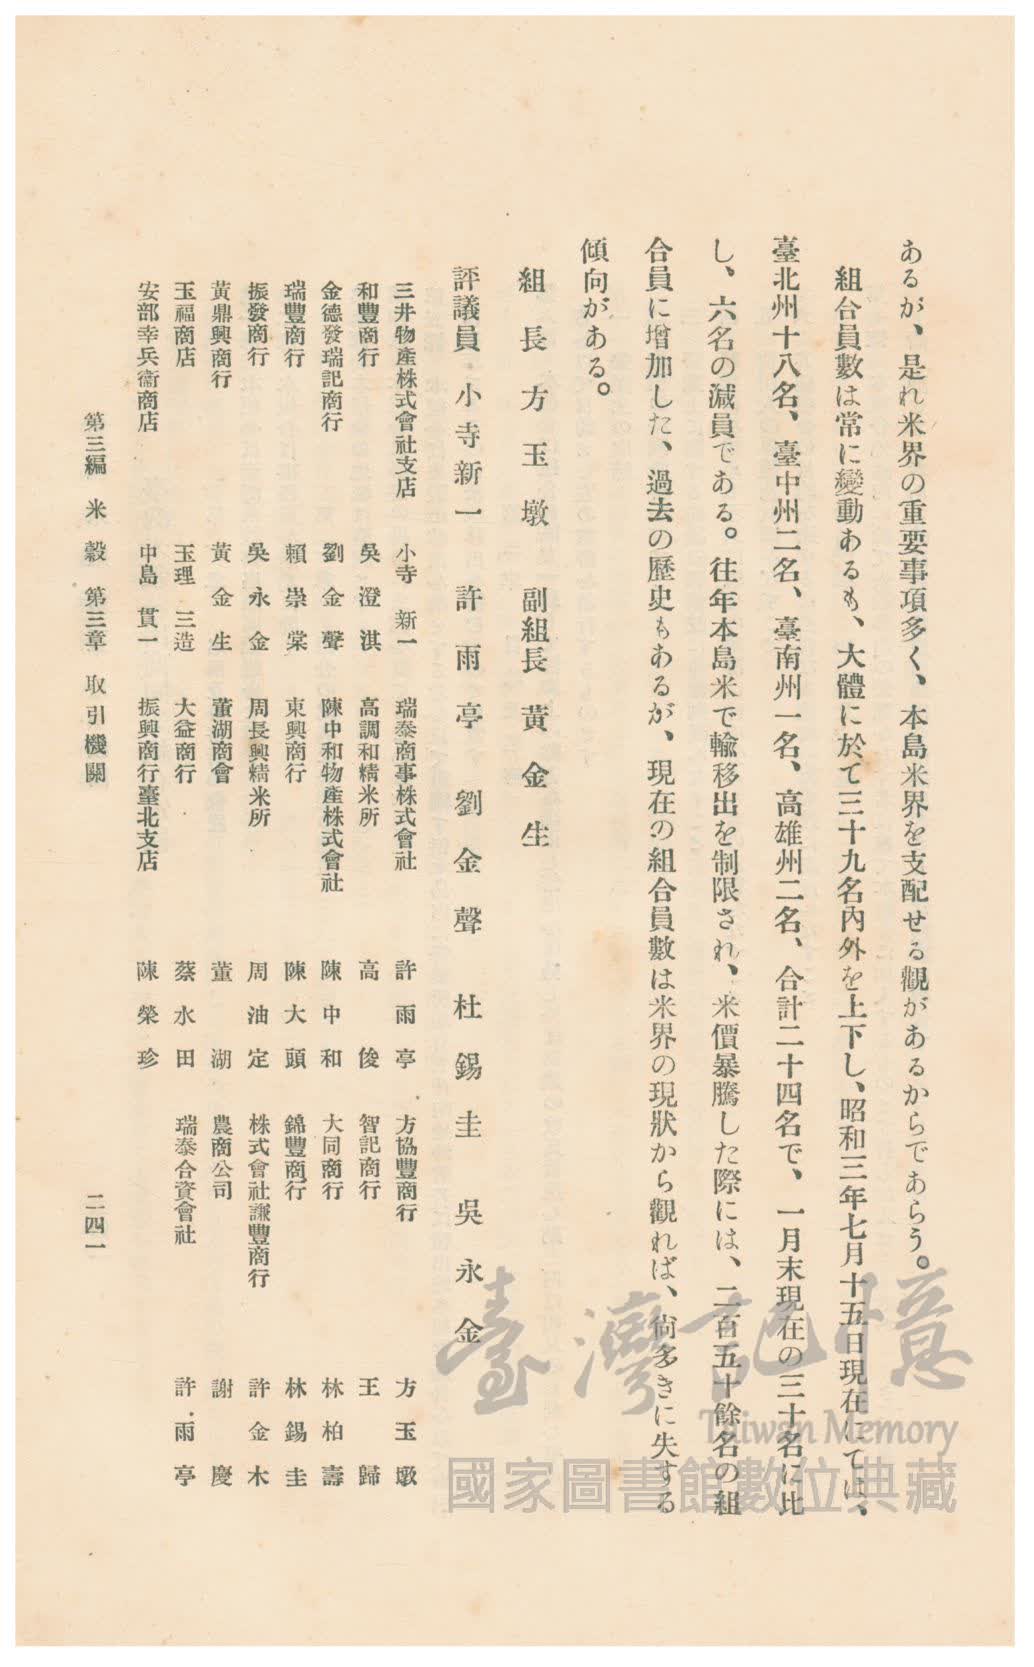 あるが、是れ米界の重要事項多く、本島米界を支配せる觀があるからであらう。
組合員數は常に變動あるも、大體に於て三十九名內外を上下し、昭和三年七月十五日現在にては、
臺北州十八名、臺中州二名、臺南州一名、高雄州二名、合計二十四名で、一月末現在の三十名に比
し、六名の減員である。往年本島米で輸移出を制限され、米價暴騰した際には、二百五十餘名の組
合員に增加した、過去の歷史もあるが、現在の組合員數は米界の現狀から觀れば、尙多きに失する
傾向がある。
組長 方玉墩 副組長 黃金生
評議員 小寺新一 許雨亭 劉金聲 杜錫圭 吳永金
三井物產株式會社支店 小寺新一 瑞泰商事株式會社 許雨亭 方協豐商行 方玉墩
和豐商行 吳澄淇 高調和精米所 高俊 智記商行 王歸
金德發瑞記商行 劉金聲 陳中和物產株式會社 陳中和 大同商行 林柏壽
瑞豐商行 賴崇棠 東興商行 陳大頭 錦豐商行 林錫圭
振發商行 吳永金 周長興精米所 周油定 株式會社謙豐商行 許金木
黃鼎興商行 黃金生 董湖商會 董湖 農商公司 謝慶
玉福商店 玉理三造 大益商行 蔡水田 瑞泰合資會社 許雨亭
安部幸兵衞商店 中島貫一 振興商行臺北支店 陳榮珍
第三編 米穀 第三章 取引機關 二四一
臺灣記憶
Taiwan Memory
國家圖書館數位典藏